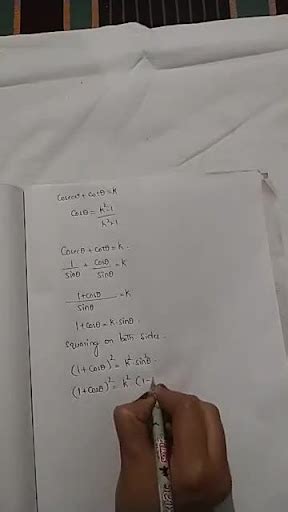 Cosecθ + Cotθ = k
Cosθ = k²-1 / k²+1
Cosecθ + Cotθ = k.
1/sinθ + Cosθ/sinθ = k
1+cosθ / sinθ = k
1 + cosθ = k. sinθ.
squaring on both sides.
(1 + Cosθ)² = k². sin²θ.
(1 + Cosθ)² = k². (1-